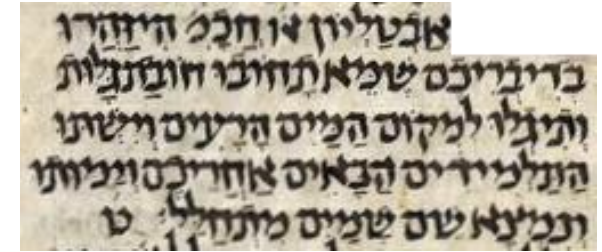 אבטליון או חכמ היזהרו
בדיבריכם שמא תחובו חובת גלות
ותיגלו למקום המים הרעים וישתו
התלמידים הבאים אחריכם וימותו
ונמצא שם שמים מתחלל ט